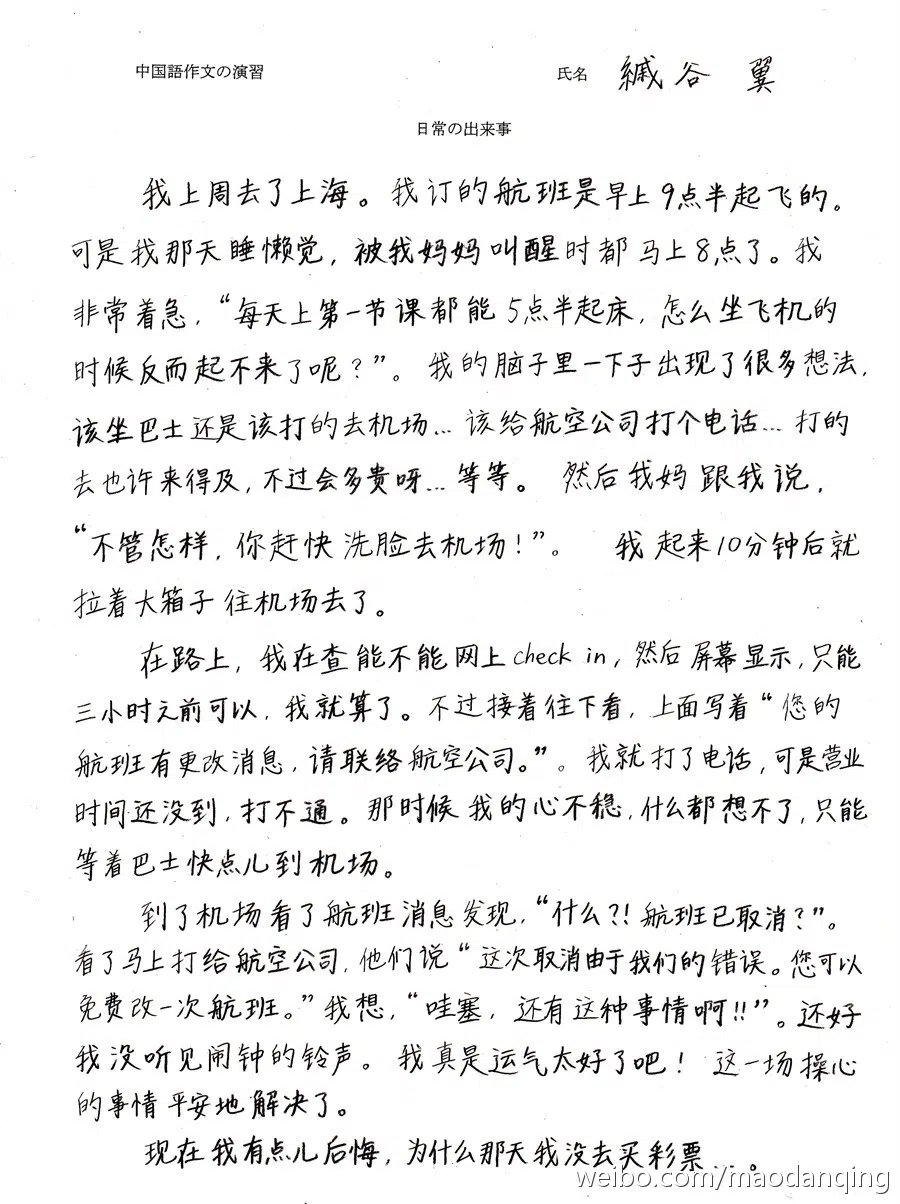 中国語作文の演習
氏名 纐谷 翼
日常の出来事
我上周去了上海。我订的航班是早上9点半起飞的。
可是我那天睡懒觉，被我妈妈叫醒时都马上8点了。我
非常着急，“每天上第一节课都能5点半起床，怎么坐飞机的
时候反而起不来了呢？”。我的脑子里一下子出现了很多想法，
该坐巴士还是该打的去机场…该给航空公司打个电话…打的
去也许来得及，不过会多贵呀…等等。然后我妈跟我说，
“不管怎样，你赶快洗脸去机场！”。 我起来10分钟后就
拉着大箱子往机场去了。
在路上，我在查能不能网上check in，然后屏幕显示，只能
三小时之前可以，我就算了。不过接着往下看，上面写着“您的
航班有更改消息，请联络航空公司。”。我就打了电话，可是营业
时间还没到，打不通。那时候我的心不稳，什么都想不了，只能
等着巴士快点儿到机场。
到了机场看了航班消息发现，“什么？！航班已取消？”。
看了马上打给航空公司，他们说“这次取消由于我们的错误。您可以
免费改一次航班。”我想，“哇塞，还有这种事情啊！！”。还好
我没听见闹钟的铃声。我真是运气太好了吧！这一场操心
的事情平安地解决了。
现在我有点儿后悔，为什么那天我没去买彩票…。
weibo.com/maodanqing